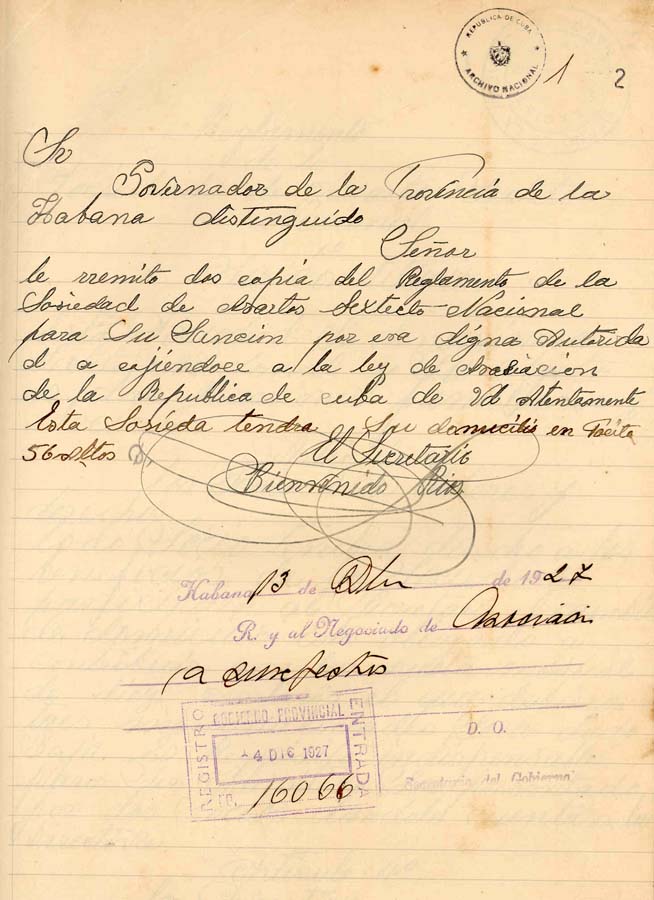 REPUBLICA DE CUBA
ARCHIVO NACIONAL
1 2
Sr
Governador de la Provincia de la
Habana distinguido
Señor
le rremito dos copia del Reglamento de la
Sosiedad de Sextecto Nacional
para Su Sancion por esa digna Autorida
d a cojiendoce a la ley de Asosiacion
de la Republica de cuba de Vd Atentamente
Esta Sosieda tendra Su domicilio en
56 Altos
El Secretario
Bienvenido
Habana 13 de Dbr de 1927
R. y al Negociado de
a sus efectos
GOBIERNO PROVINCIAL
REGISTRO
ENTRADA
14 DIC 1927
16066
D. O.
Secretario del Gobierno